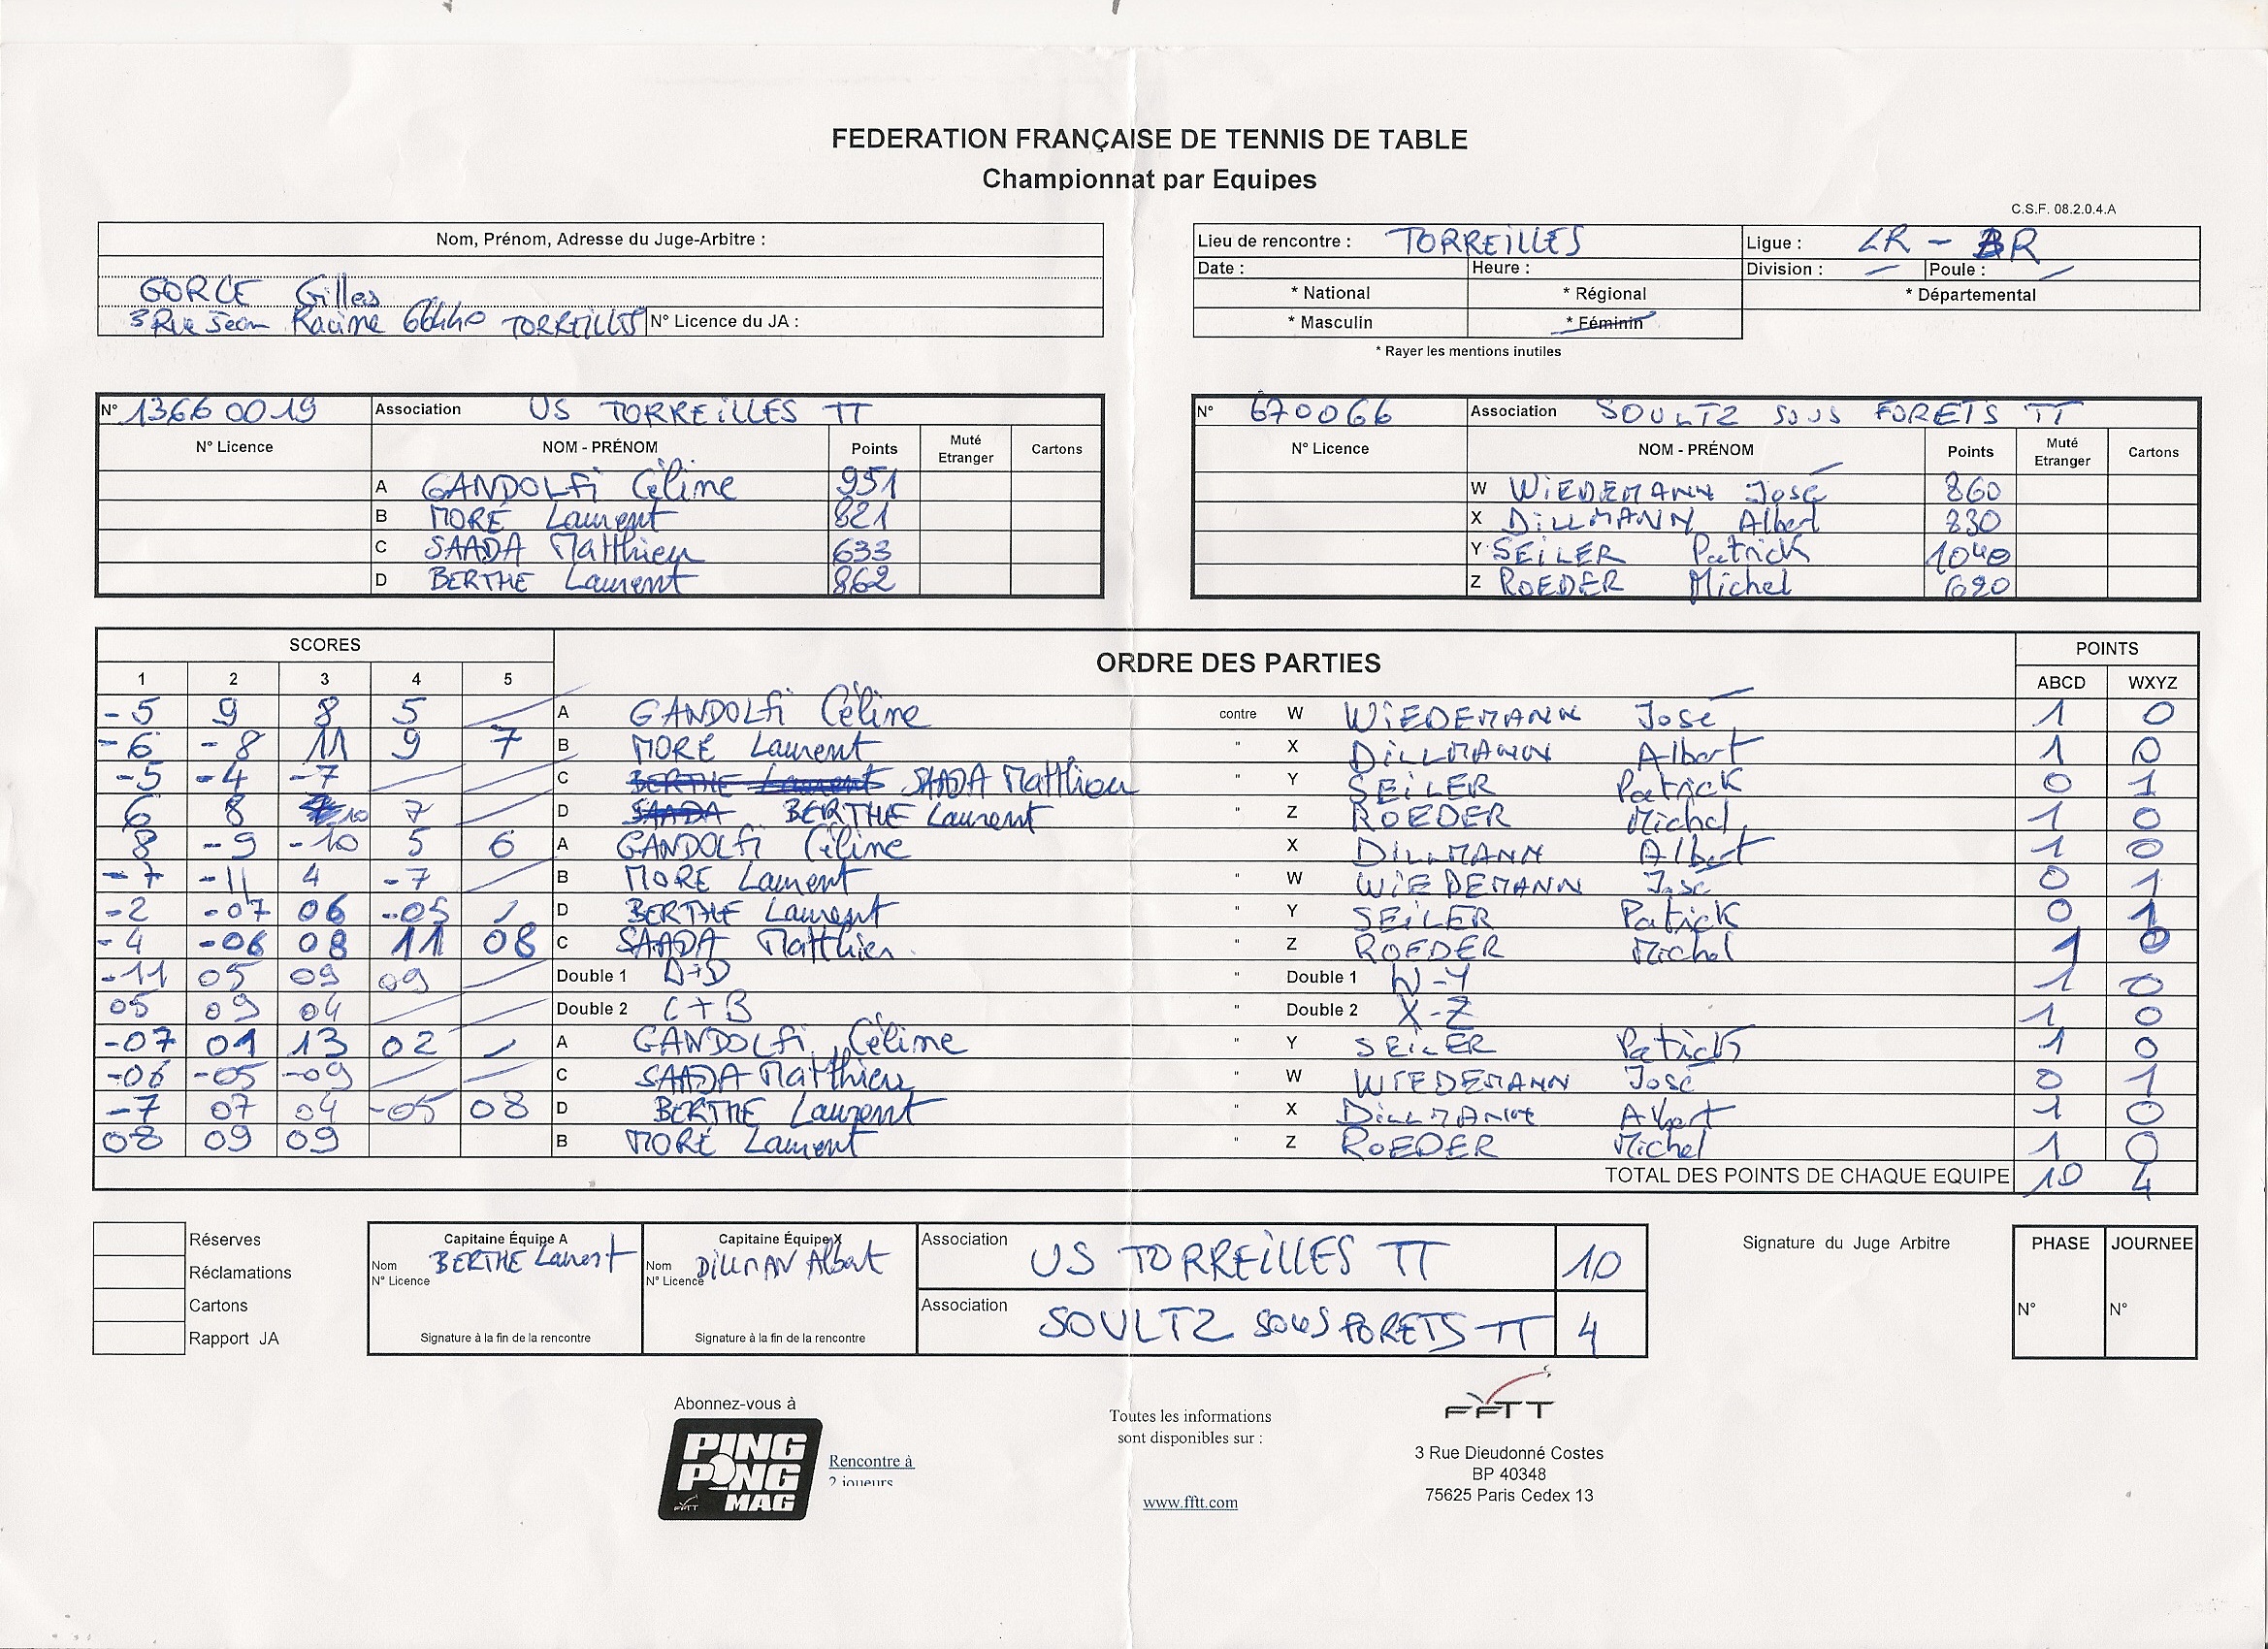 FEDERATION FRANÇAISE DE TENNIS DE TABLE
Championnat par Equipes
C.S.F. 08.2.0.4.A
Nom, Prénom, Adresse du Juge-Arbitre :
GORCE Gilles
3 Rue Jean Racine 66440 TORREILLES N° Licence du JA :
Lieu de rencontre : TORREILLES Ligue : LR - BR
Date : Heure : Division : Poule :
* National * Régional * Départemental
* Masculin * Féminin
* Rayer les mentions inutiles
N° 13660019 Association US TORREILLES TT
N° Licence NOM - PRÉNOM Points Muté Etranger Cartons
A GANDOLFI Céline 951
B MORÉ Laurent 821
C SAADA Matthieu 633
D BERTHE Laurent 862
N° 670066 Association SOULTZ SOUS FORETS TT
N° Licence NOM - PRÉNOM Points Muté Etranger Cartons
W WIEDEMANN José 860
X DILLMANN Albert 830
Y SEILER Patrick 1040
Z ROEDER Michel 690
SCORES ORDRE DES PARTIES POINTS
1 2 3 4 5 ABCD WXYZ
-5 9 8 5 A GANDOLFI Céline contre W WIEDEMANN José 1 0
-6 -8 11 9 7 B MORÉ Laurent " X DILLMANN Albert 1 0
-5 -4 -7 C BERTHE Laurent SAADA Matthieu " Y SEILER Patrick 0 1
6 8 -10 7 D SAADA BERTHE Laurent " Z ROEDER Michel 1 0
8 -9 -10 5 6 A GANDOLFI Céline " X DILLMANN Albert 1 0
-7 -11 4 -7 B MORÉ Laurent " W WIEDEMANN José 0 1
-2 -07 06 -05 D BERTHE Laurent " Y SEILER Patrick 0 1
-4 -06 08 11 08 C SAADA Matthieu " Z ROEDER Michel 1 0
-11 05 09 09 Double 1 A+D " Double 1 W-Y 1 0
05 09 04 Double 2 C+B " Double 2 X-Z 1 0
-07 01 13 02 A GANDOLFI Céline " Y SEILER Patrick 1 0
-06 -05 -09 C SAADA Matthieu " W WIEDEMANN José 0 1
-7 07 04 -05 08 D BERTHE Laurent " X DILLMANN Albert 1 0
08 09 09 B MORÉ Laurent " Z ROEDER Michel 1 0
TOTAL DES POINTS DE CHAQUE EQUIPE 10 4
Réserves
Réclamations
Cartons
Rapport JA
Capitaine Équipe A
Nom BERTHE Laurent
N° Licence
Signature à la fin de la rencontre
Capitaine Équipe X
Nom DILLMAN Albert
N° Licence
Signature à la fin de la rencontre
Association US TORREILLES TT 10
Association SOULTZ SOUS FORETS TT 4
Signature du Juge Arbitre
PHASE JOURNEE
N° N°
Abonnez-vous à
PING
PONG
MAG
FFTT
Rencontre à
2 joueurs
Toutes les informations
sont disponibles sur :
www.fftt.com
FFTT
3 Rue Dieudonné Costes
BP 40348
75625 Paris Cedex 13